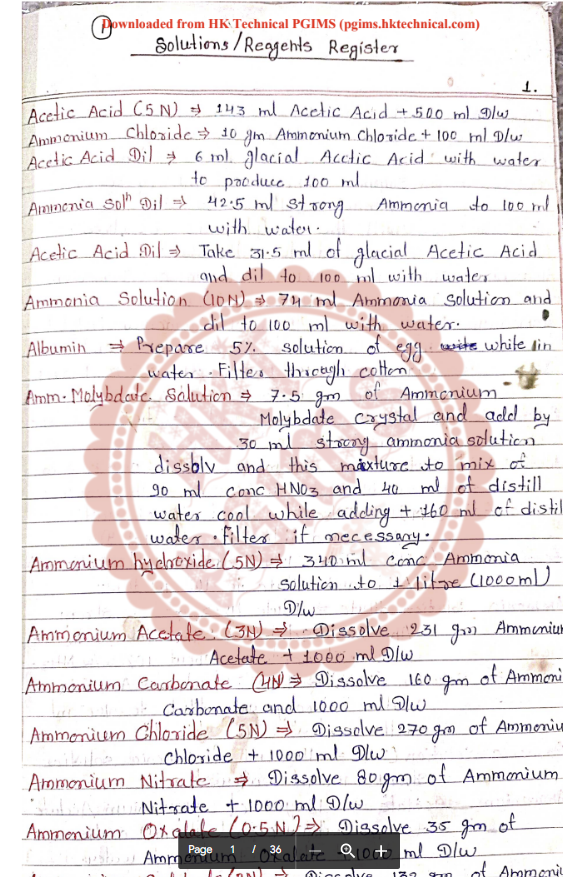 Downloaded from HK Technical PGIMS (pgims.hktechnical.com)
1
Solutions/Reagents Register
1.
Acetic Acid (5N) ⇒ 143 ml Acetic Acid + 500 ml D/w
Ammonium Chloride ⇒ 10 gm Ammonium Chloride + 100 ml D/w
Acetic Acid Dil ⇒ 6 ml glacial Acetic Acid with water
to produce 100 ml
Ammonia Solⁿ Dil ⇒ 42.5 ml strong Ammonia to 100 ml
with water.
Acetic Acid Dil ⇒ Take 31.5 ml of glacial Acetic Acid
and dil to 100 ml with water
Ammonia Solution (10N) ⇒ 74 ml Ammonia solution and
dil to 100 ml with water.
Albumin ⇒ Prepare 5% solution of egg white in
water. Filter through cotton
Amm. Molybdate Solution ⇒ 7.5 gm of Ammonium
Molybdate crystal and add by
30 ml strong ammonia solution
dissolv and this mixture to mix of
90 ml conc HNO3 and 40 ml of distill
water cool while adding + 160 ml of distil
water. Filter if necessary.
Ammonium hydroxide (5N) ⇒ 340 ml conc Ammonia
solution to 1 litre (1000 ml)
D/w
Ammonium Acetate (3N) ⇒ Dissolve 231 gm Ammonium
Acetate + 1000 ml D/w
Ammonium Carbonate (4N) ⇒ Dissolve 160 gm of Ammoni
Carbonate and 1000 ml D/w
Ammonium Chloride (5N) ⇒ Dissolve 270 gm of Ammoniu
Chloride + 1000 ml D/w
Ammonium Nitrate ⇒ Dissolve 80 gm of Ammonium
Nitrate + 1000 ml D/w
Ammonium Oxalate (0.5N) ⇒ Dissolve 35 gm of
Ammonium Oxalate + 1000 ml D/w
Page 1 / 36